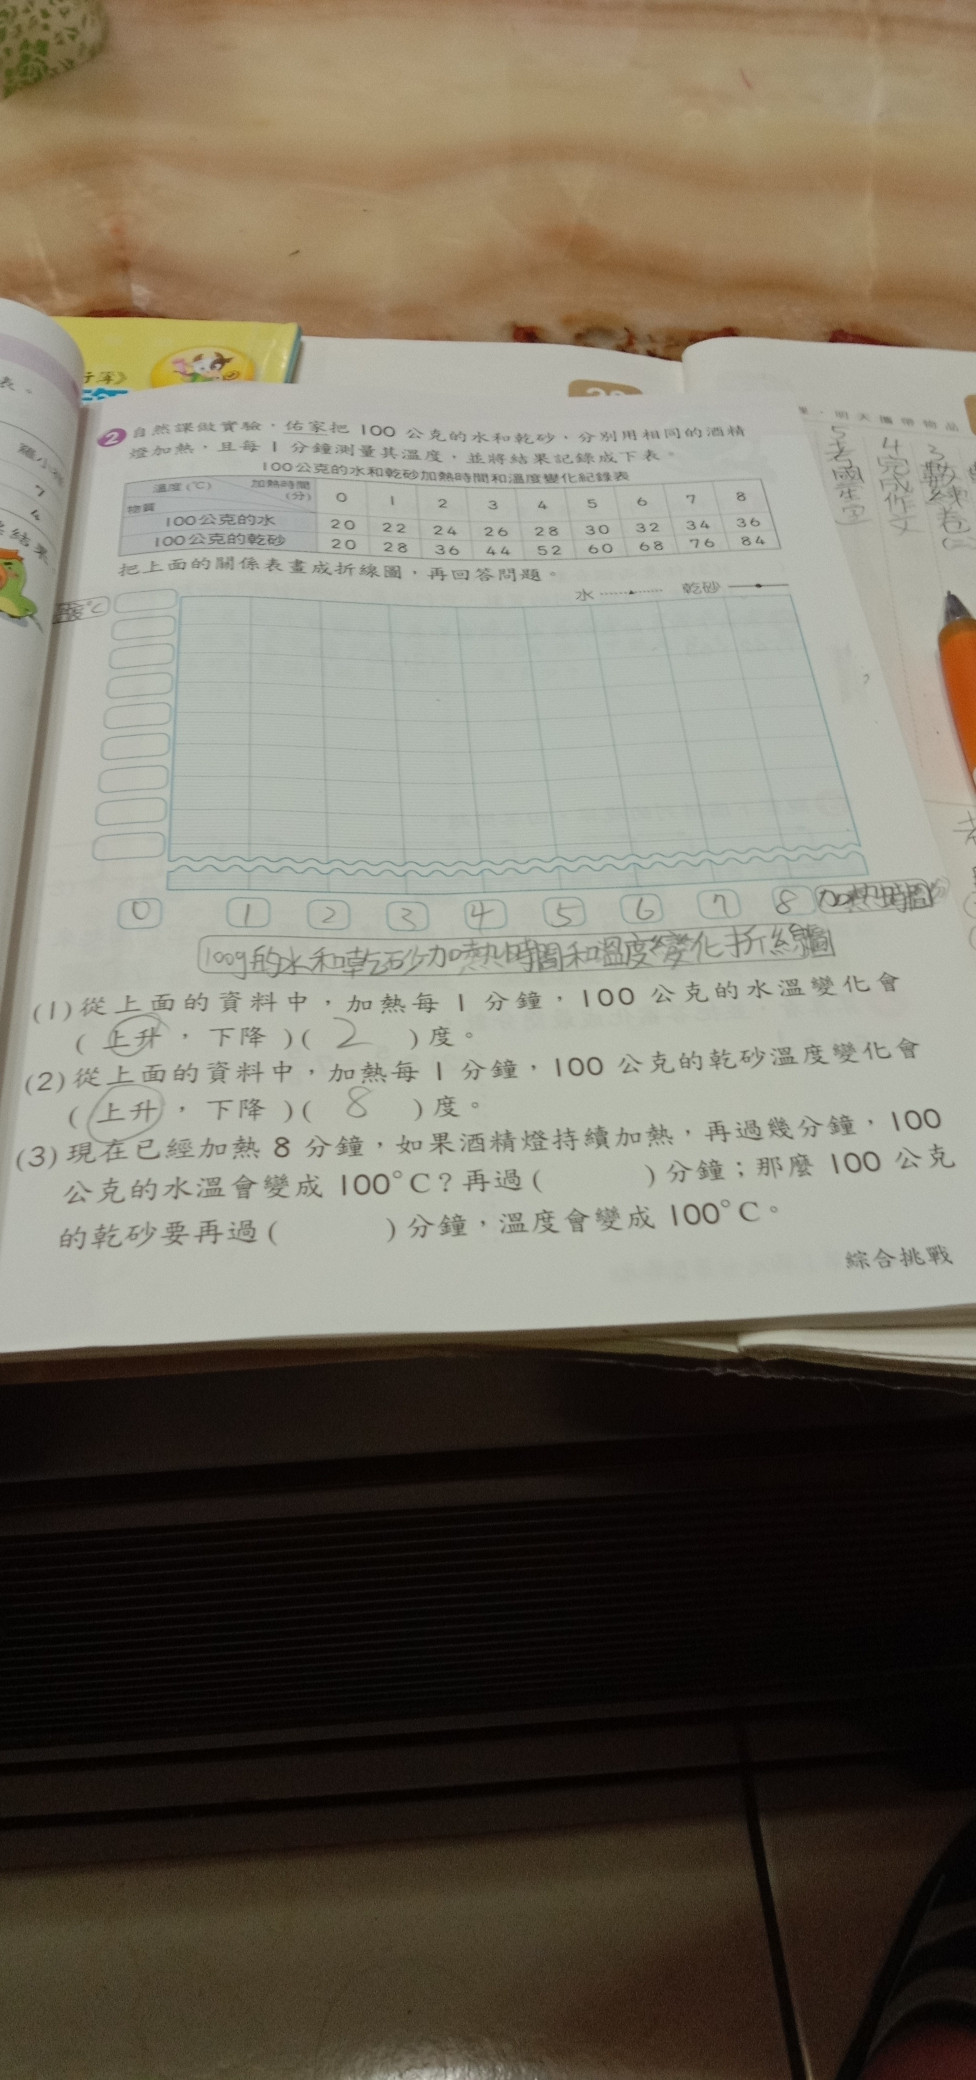 表。
❷自然課做實驗，佑家把 100 公克的水和乾砂，分別用相同的酒精
燈加熱，且每 1 分鐘測量其溫度，並將結果記錄成下表。
100公克的水和乾砂加熱時間和溫度變化紀錄表
溫度(℃) 加熱時間(分) 物質 0 1 2 3 4 5 6 7 8
100公克的水 20 22 24 26 28 30 32 34 36
100公克的乾砂 20 28 36 44 52 60 68 76 84
把上面的關係表畫成折線圖，再回答問題。
水 乾砂
0 1 2 3 4 5 6 7 8 加熱時間
100g的水和乾砂加熱時間和溫度變化折線圖
(1)從上面的資料中，加熱每 1 分鐘，100 公克的水溫變化會
(上升，下降)( 2 )度。
(2)從上面的資料中，加熱每 1 分鐘，100 公克的乾砂溫度變化會
(上升，下降)( 8 )度。
(3)現在已經加熱 8 分鐘，如果酒精燈持續加熱，再過幾分鐘，100
公克的水溫會變成 100°C？再過( )分鐘；那麼 100 公克
的乾砂要再過( )分鐘，溫度會變成 100°C。
綜合挑戰
明天攜帶物品
4完成作文